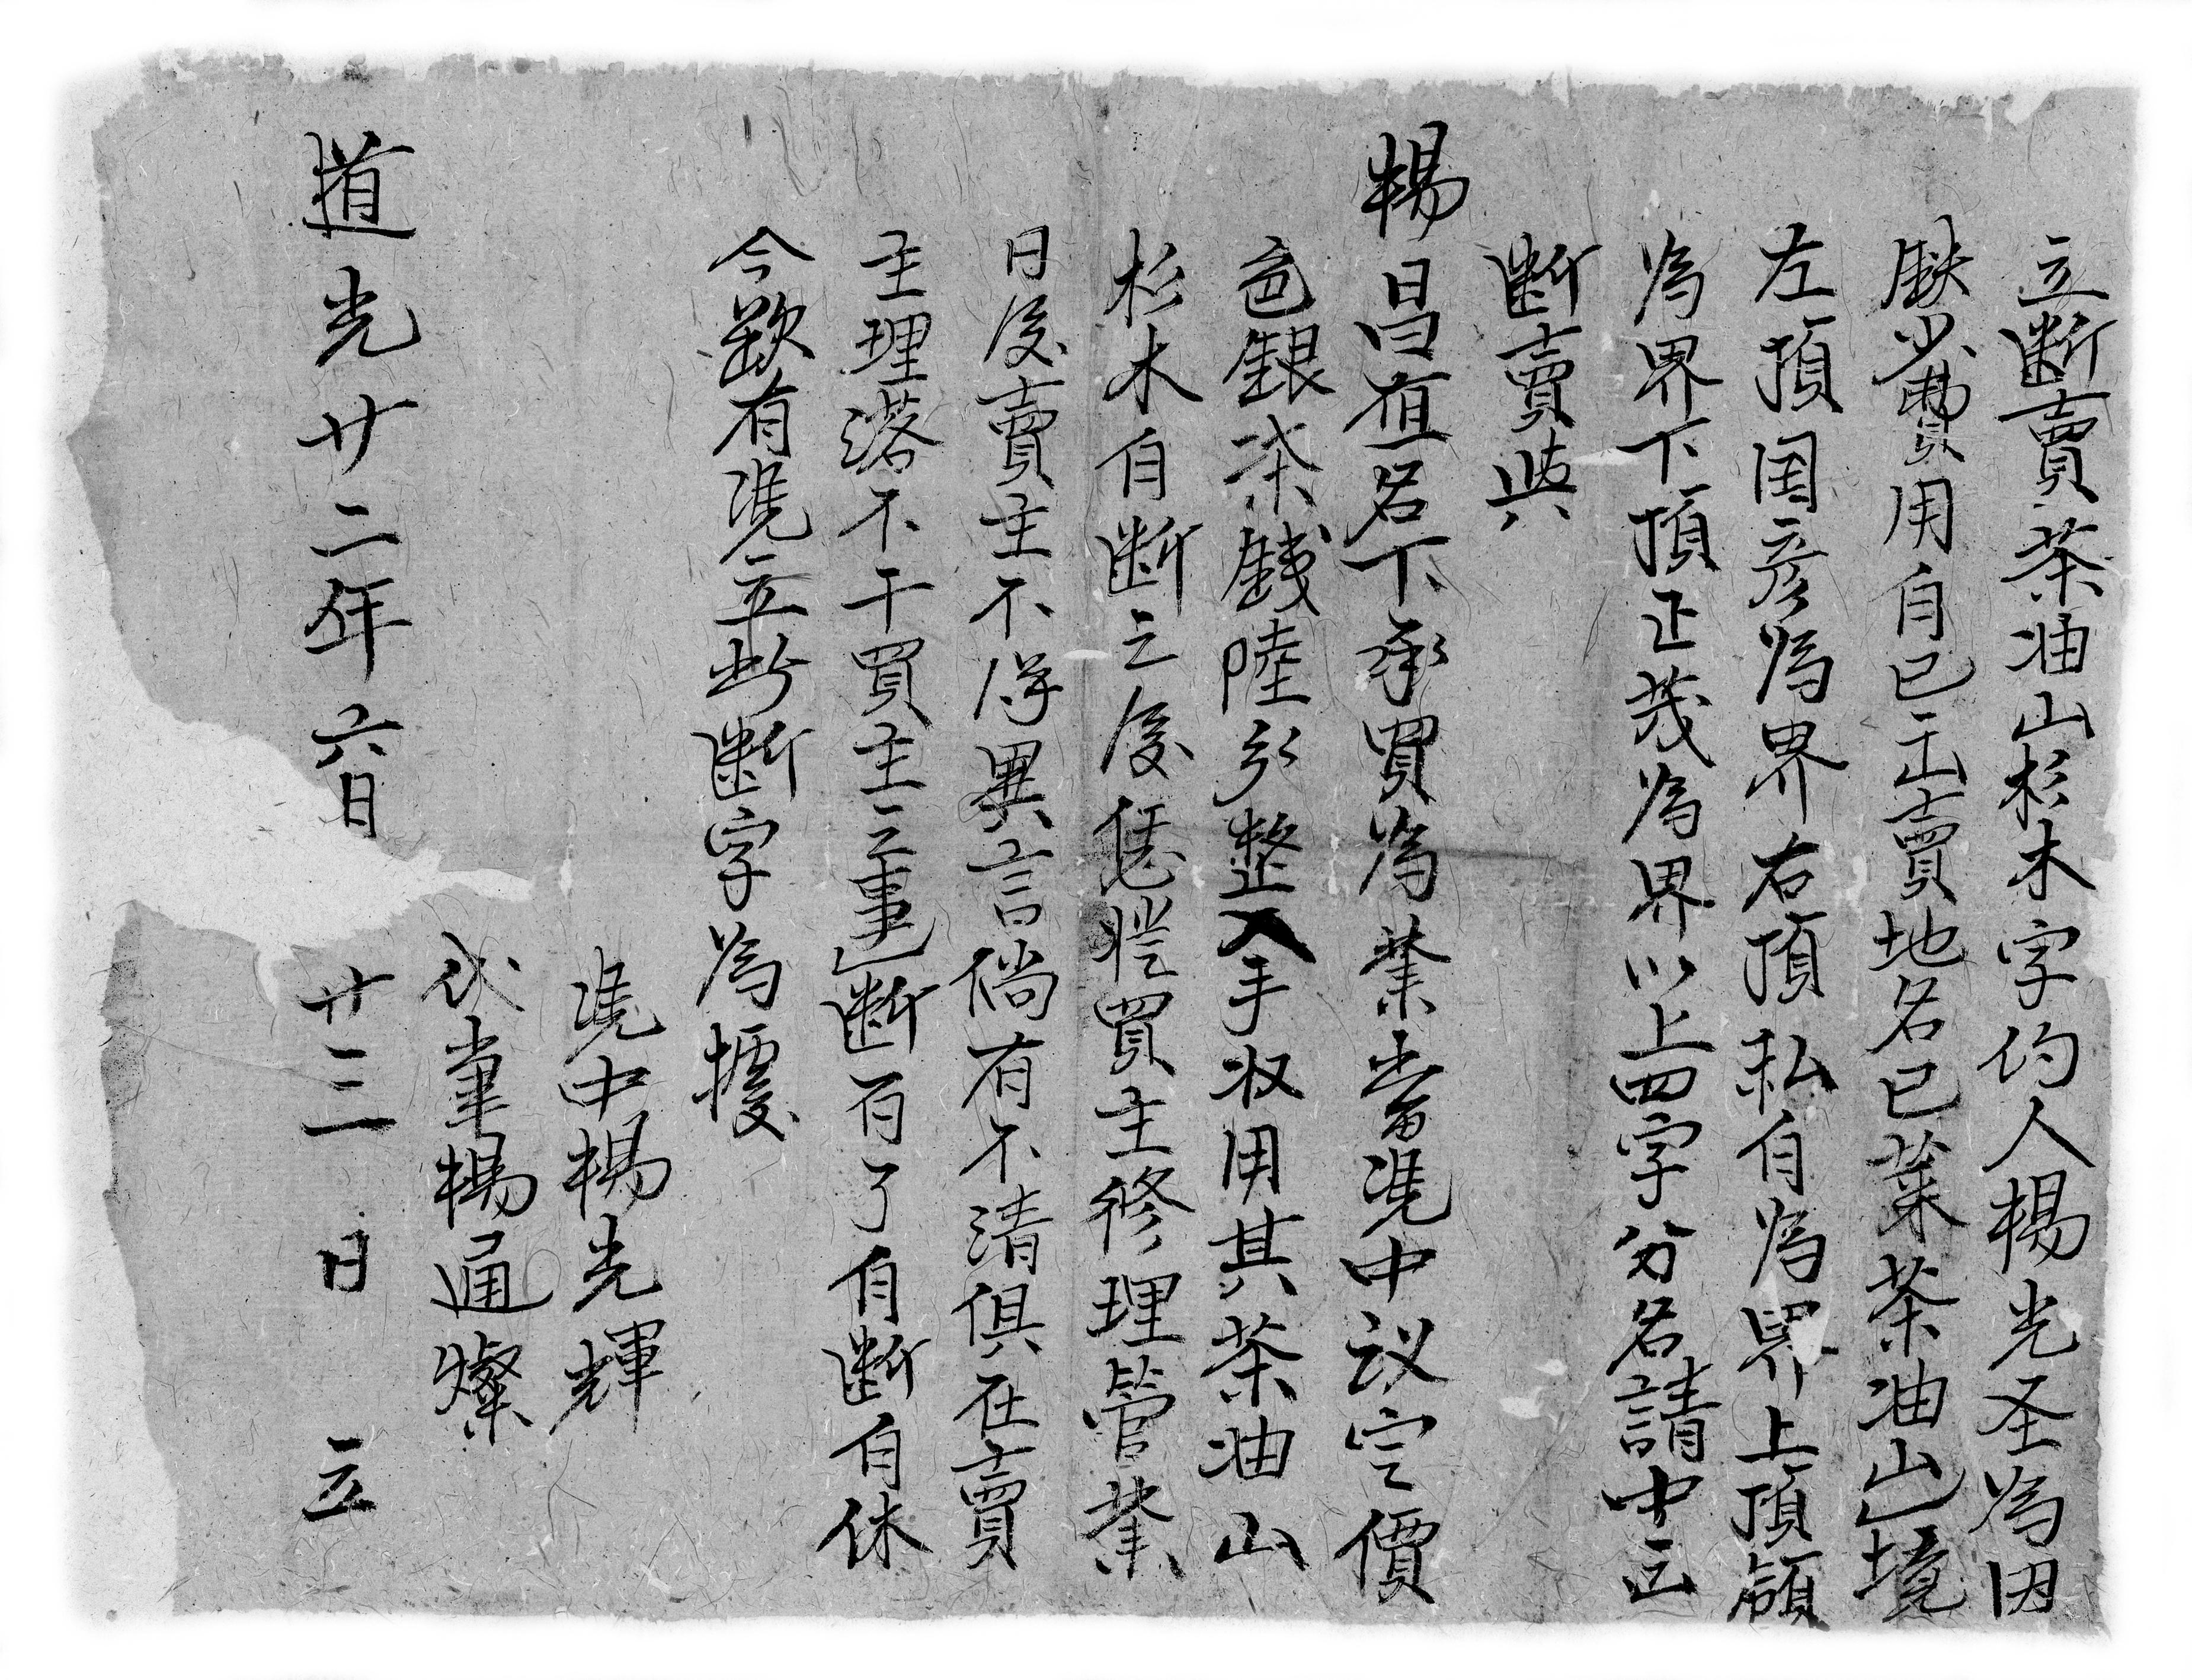 立断賣茶油山杉木字约人楊光圣為因
缺少費用自已正賣地名已菜茶油山一境
左頂国彦為界右頂私自為界上頂領
為界下頂正茂為界以上四字分名請中正
断賣與
楊昌值名下承買為業當凴中议定價
色銀柒錢陸分整入手收用其茶油山
杉木自断之後凭從買主修理管業
日後賣主不得異言倘有不清俱在賣
主理落不干買主之事一断百了自断自休
今欲有凴立此断字為據
凴中楊光輝
代筆楊通燦
道光廿二年六月廿三日立